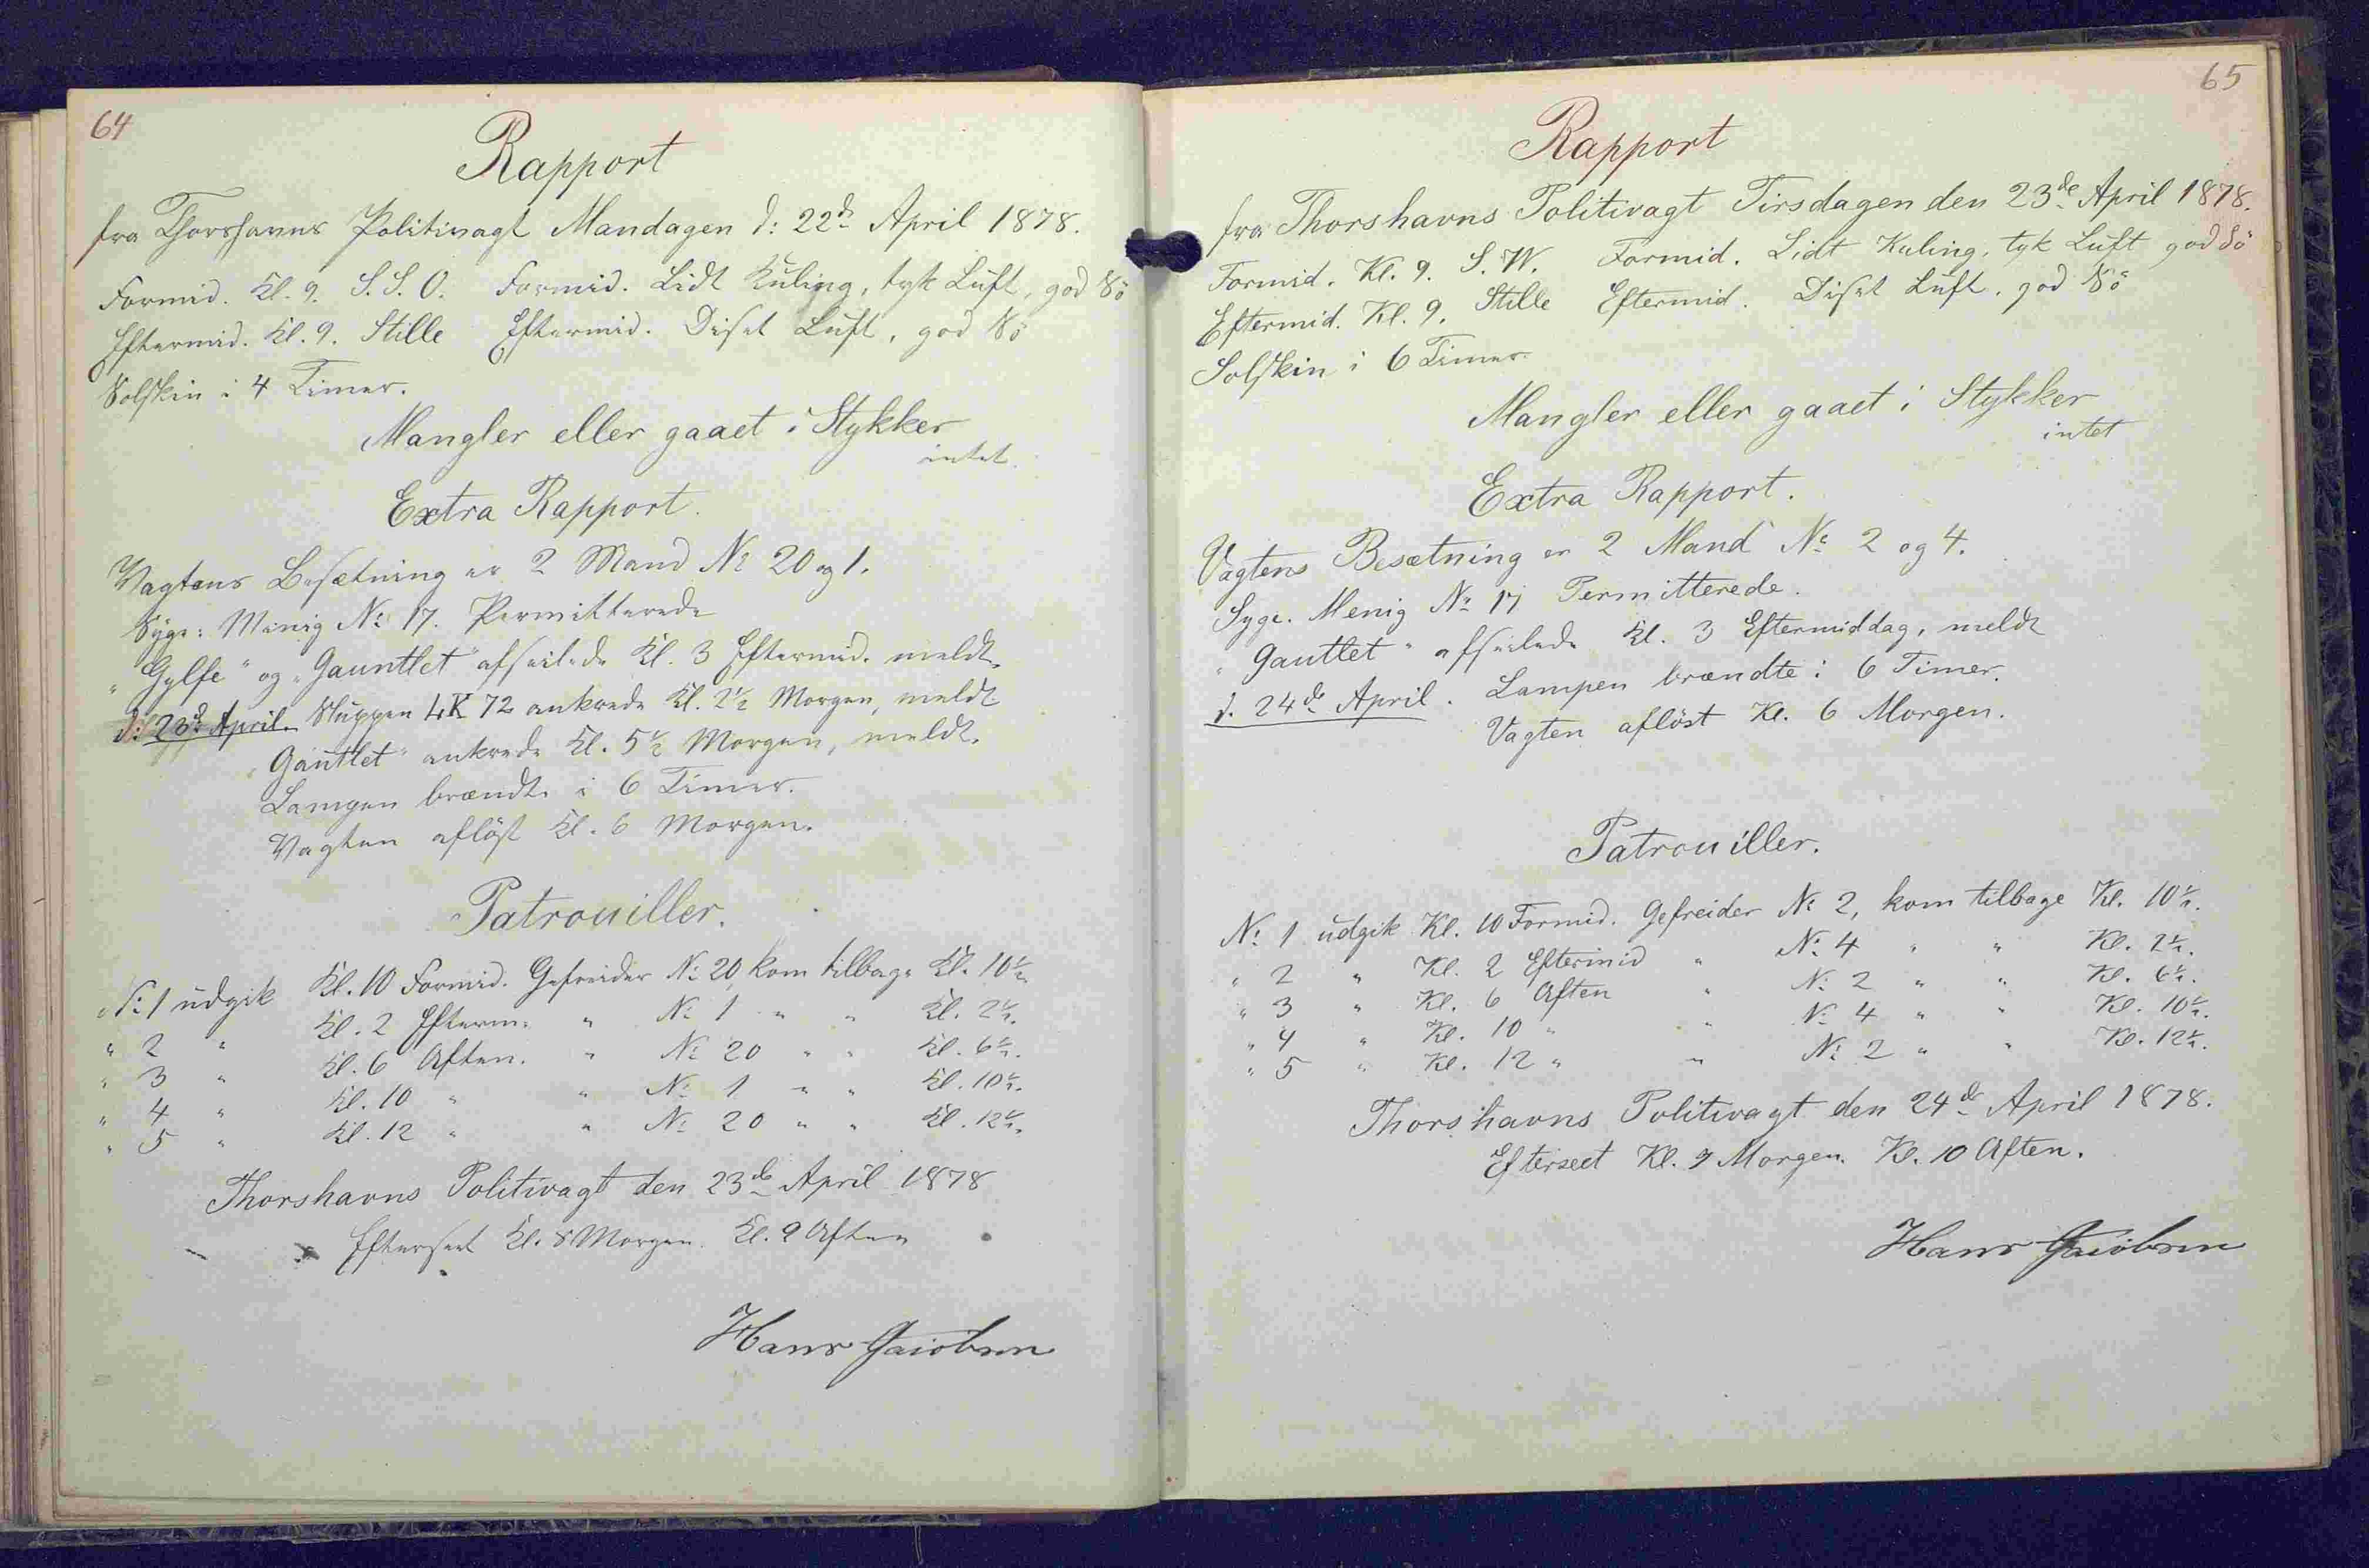 64
Rapport
fra Thorshavns Politivagt Mandagen d: 22de April 1878.
Formid. Kl. 9. S. S. O. Formid. Lidt Kuling, tyk Luft, god Sö
Eftermid. Kl. 9. Stille Eftermid. Diset Luft, god Sö
Solskin i 4 Timer.
Mangler eller gaaet i Stykker
intet.
Extra Rapport.
Vagtens Besætning er 2 Mand No 20 og 1.
Syge: Menig No 17. Permitterede
"Gylfe" og "Gauntlet" afseilede Kl. 3 Eftermid. meldt.
d: 23de April. Sluppen LK 72 ankrede Kl. 2½ Morgen, meldt
"Gauntlet" ankrede Kl. 5½ Morgen, meldt.
Lampen brændte i 6 Timer.
Vagten aflöst Kl. 6 Morgen.
Patrouiller.
No 1 udgik Kl. 10 Formid. Gefreider No 20, kom tilbage Kl. 10½
" 2 " Kl. 2 Efterm. " No 1 " " Kl. 2½.
" 3 " Kl. 6 Aften. " No 20 " " Kl. 6½.
" 4 " Kl. 10 " " No 1 " " Kl. 10½.
" 5 " Kl. 12 " " No 20 " " Kl. 12½.
Thorshavns Politivagt den 23de April 1878
Efterseet Kl. 8 Morgen. Kl. 9 Aften
Hans Jacobsen
65
Rapport
fra Thorshavns Politivagt Tirsdagen den 23de April 1878.
Formid. Kl. 9. S. W. Formid. Lidt Kuling, tyk Luft god Sö
Eftermid. Kl. 9. Stille Eftermid. Diset Luft, god Sö
Solskin i 6 Timer.
Mangler eller gaaet i Stykker
intet
Extra Rapport.
Vagtens Besætning er 2 Mand No 2 og 4.
Syge. Menig No 17 Permitterede.
"Gautlet" afseilede Kl. 3 Eftermiddag, meldt
d. 24de April. Lampen brændte i 6 Timer.
Vagten aflöst Kl. 6 Morgen.
Patrouiller.
No 1 udgik Kl. 10 Formid. Gefreider No 2, kom tilbage Kl. 10½.
" 2 " Kl. 2 Eftermid " No 4 " " Kl. 2½.
" 3 " Kl. 6 Aften " No 2 " " Kl. 6½.
" 4 " Kl. 10 " " No 4 " " Kl. 10½.
" 5 " Kl. 12 " " No 2 " " Kl. 12½.
Thorshavns Politivagt den 24de April 1878.
Efterseet Kl. 7 Morgen. Kl. 10 Aften.
Hans Jacobsen